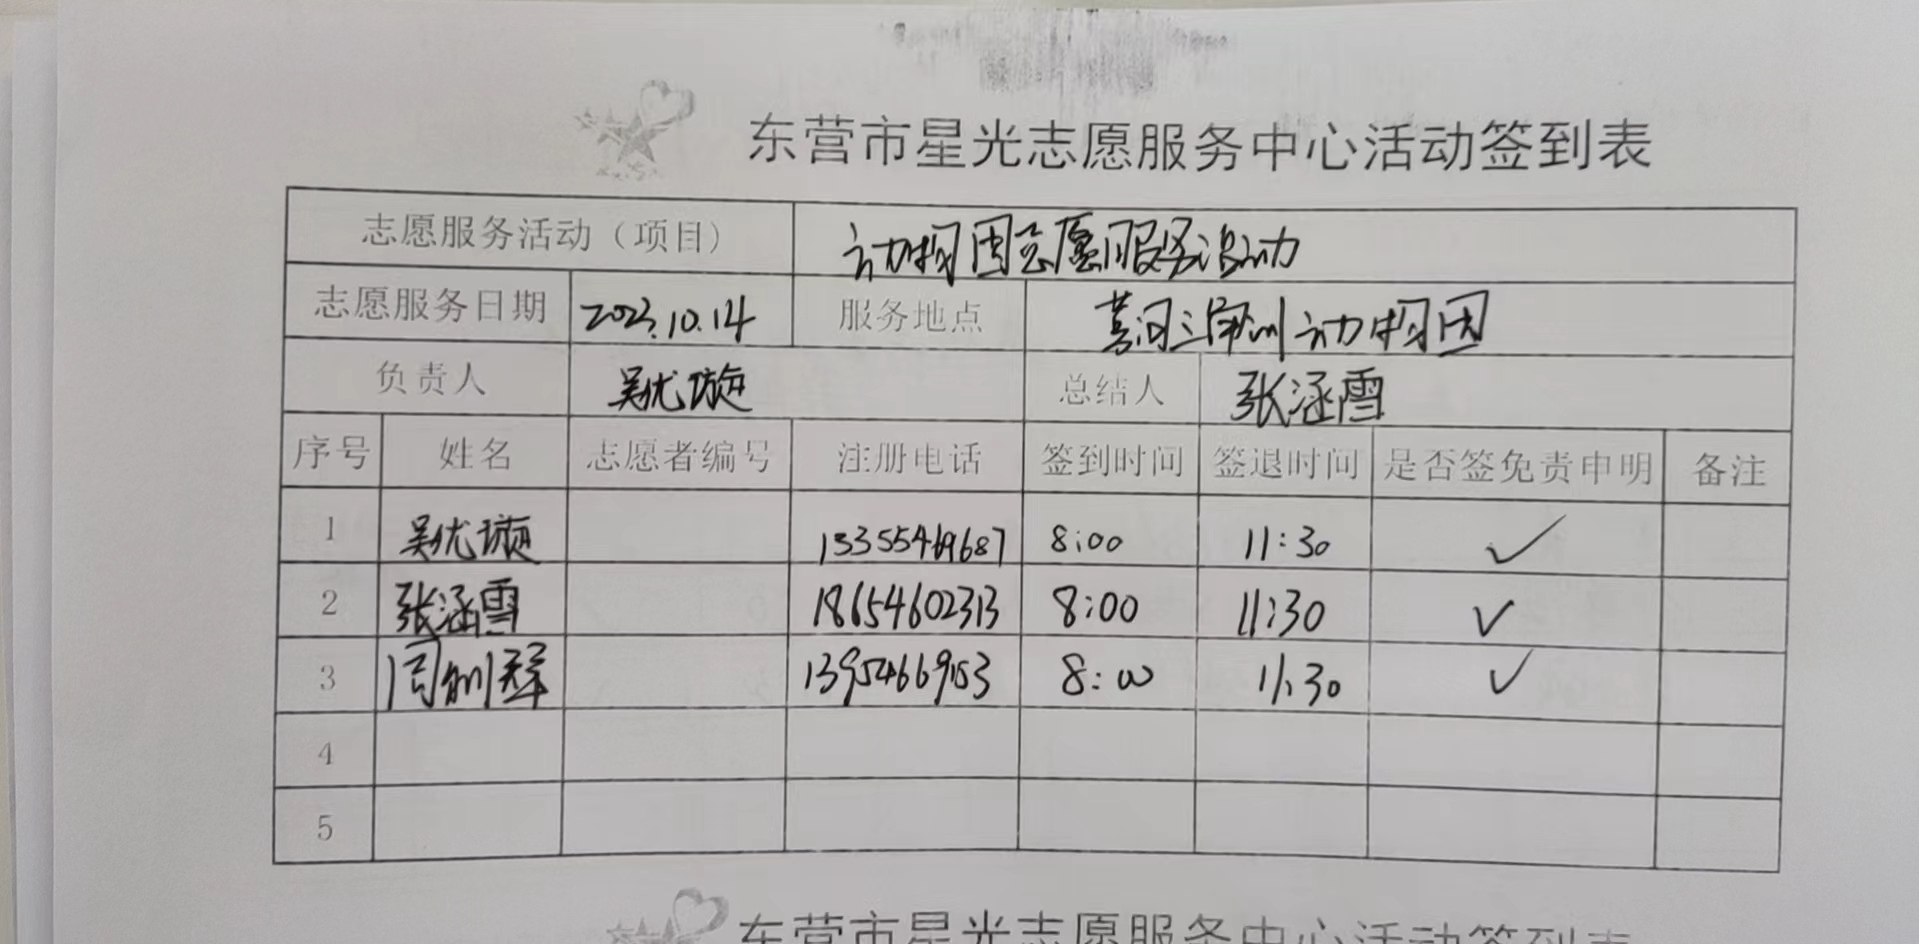 东营市星光志愿服务中心活动签到表
志愿服务活动（项目） 动物园志愿服务活动
志愿服务日期 2023.10.14 服务地点 黄河三角洲动物园
负责人 吴优璇 总结人 张涵雪
序号 姓名 志愿者编号 注册电话 签到时间 签退时间 是否签免责申明 备注
1 吴优璇 13355469687 8:00 11:30 ✓
2 张涵雪 18654602313 8:00 11:30 ✓
3 周 群 13954669153 8:00 11:30 ✓
4
5
东营市星光志愿服务中心活动签到表